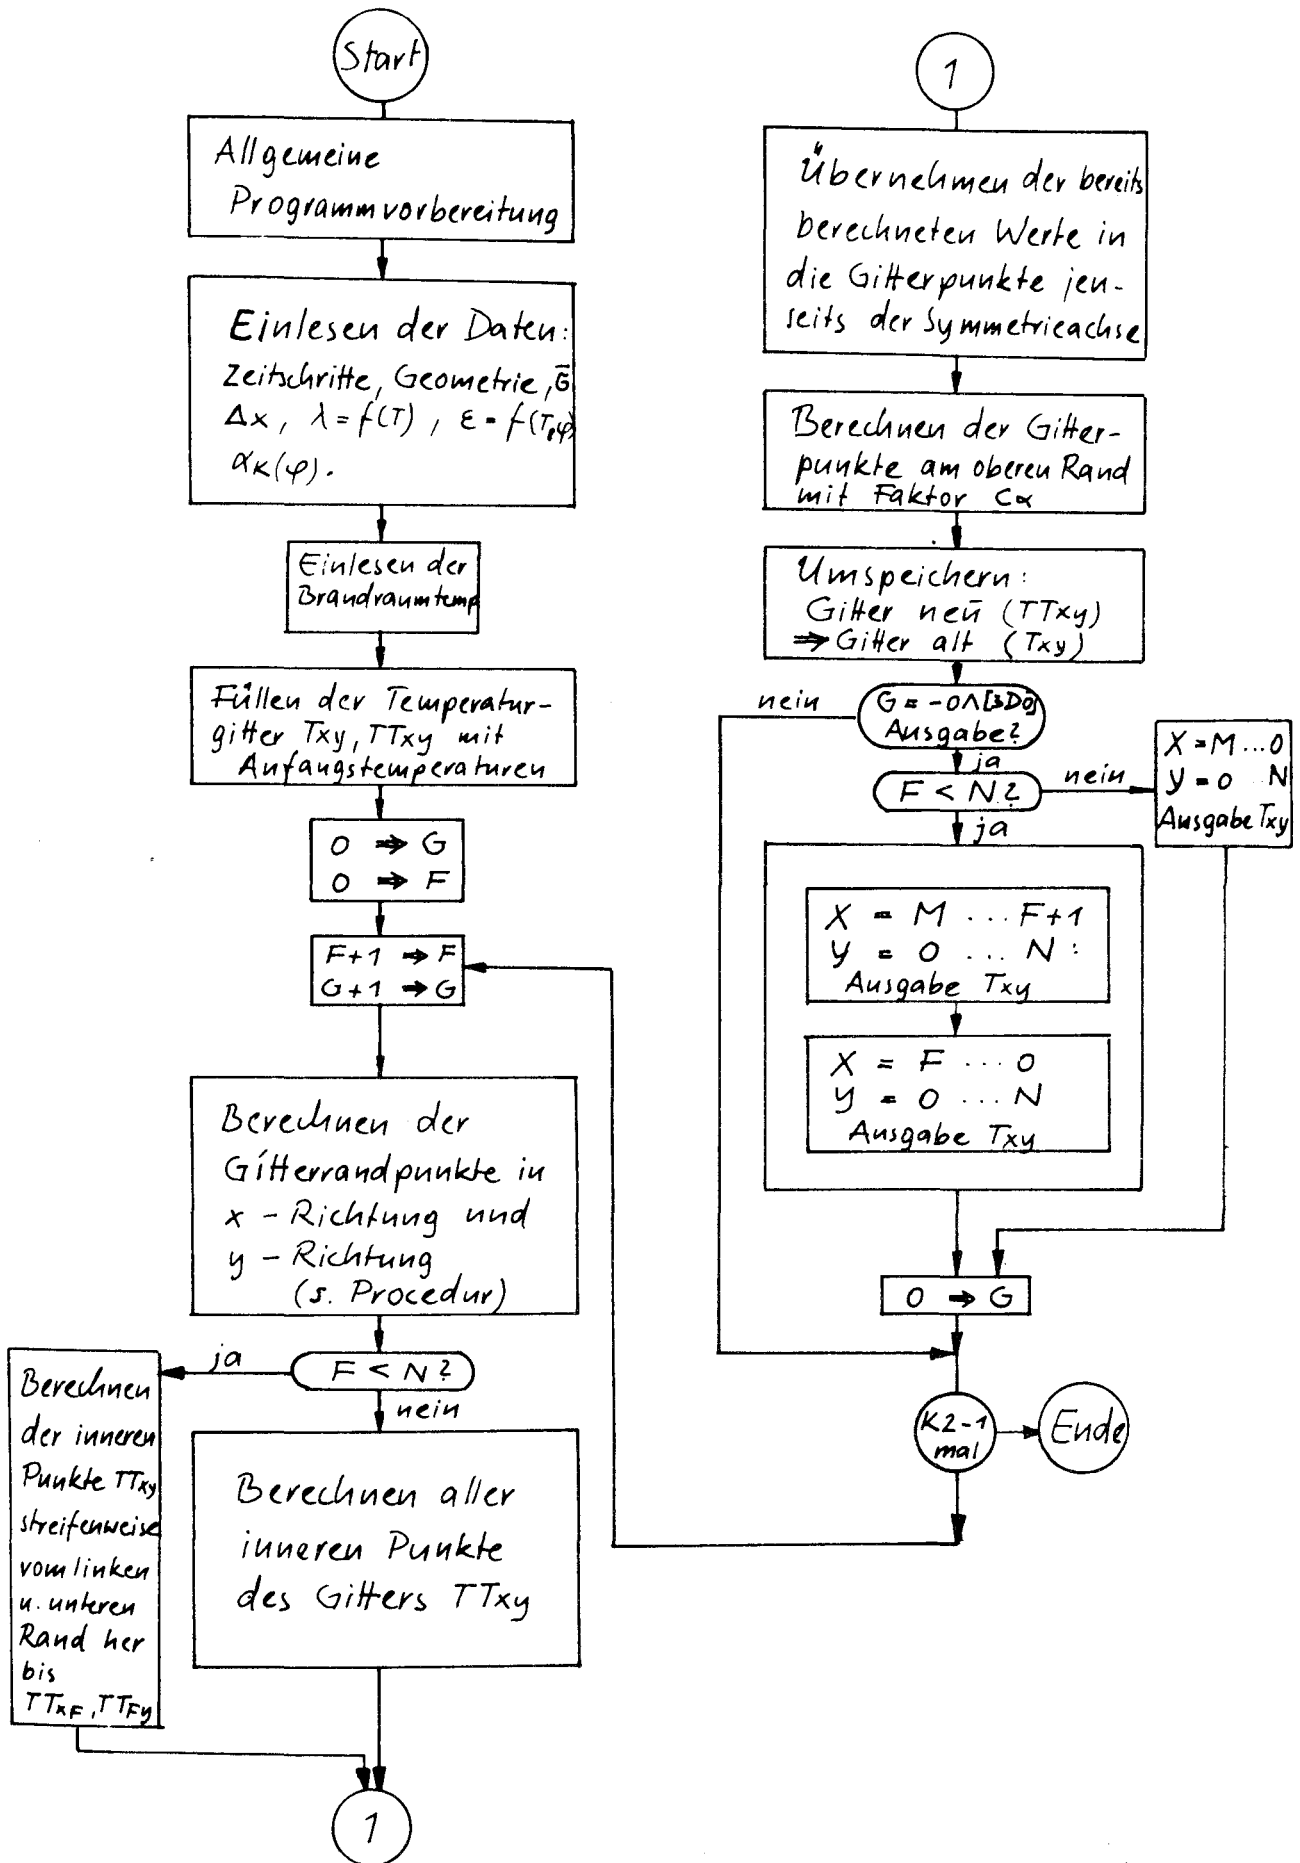 Start
Allgemeine
Programmvorbereitung
Einlesen der Daten:
Zeitschritte, Geometrie, G̅
Δx, λ = f(T), ε = f(T,φ)
αK(φ).
Einlesen der
Brandraumtemp
Füllen der Temperatur-
gitter Txy, TTxy mit
Anfangstemperaturen
0 ⇒ G
0 ⇒ F
F+1 ⇒ F
G+1 ⇒ G
Berechnen der
Gitterrandpunkte in
x - Richtung und
y - Richtung
(s. Procedur)
F < N?
ja
nein
Berechnen
der inneren
Punkte TTxy
streifenweise
vom linken
u. unteren
Rand her
bis
TTxF, TTFy
Berechnen aller
inneren Punkte
des Gitters TTxy
1
1
Übernehmen der bereits
berechneten Werte in
die Gitterpunkte jen-
seits der Symmetrieachse
Berechnen der Gitter-
punkte am oberen Rand
mit Faktor Cα
Umspeichern:
Gitter neu (TTxy)
⇒ Gitter alt (Txy)
nein
G = -0∧
Ausgabe?
ja
F < N?
nein
ja
X = M ... 0
Y = 0 .. N
Ausgabe Txy
X = M ... F+1
Y = 0 ... N :
Ausgabe Txy
X = F ... 0
Y = 0 ... N
Ausgabe Txy
0 ⇒ G
K2-1
mal
Ende